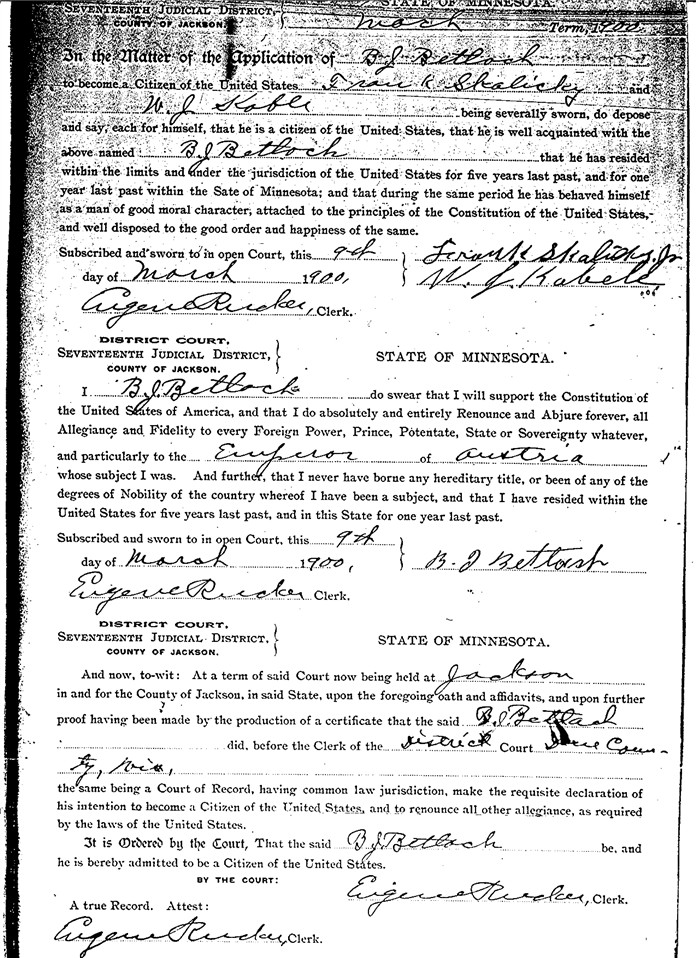 SEVENTEENTH JUDICIAL DISTRICT,
COUNTY OF JACKSON.
STATE OF MINNESOTA.
Term, 1900
In the Matter of the Application of B J Betlach
to become a Citizen of the United States Frank Skalicky and
W. J. Kabele being severally sworn, do depose
and say, each for himself, that he is a citizen of the United States, that he is well acquainted with the
above named B J Betlach that he has resided
within the limits and under the jurisdiction of the United States for five years last past, and for one
year last past within the Sate of Minnesota; and that during the same period he has behaved himself
as a man of good moral character, attached to the principles of the Constitution of the United States,
and well disposed to the good order and happiness of the same.
Subscribed and sworn to in open Court, this 9th
day of March 1900,
Frank Skalicky Jr
W. J. Kabele
Eugene Rucker, Clerk.
DISTRICT COURT,
SEVENTEENTH JUDICIAL DISTRICT,
COUNTY OF JACKSON.
STATE OF MINNESOTA.
I B.J. Betlach do swear that I will support the Constitution of
the United States of America, and that I do absolutely and entirely Renounce and Abjure forever, all
Allegiance and Fidelity to every Foreign Power, Prince, Potentate, State or Sovereignty whatever,
and particularly to the Emperor of Austria
whose subject I was. And further, that I never have borne any hereditary title, or been of any of the
degrees of Nobility of the country whereof I have been a subject, and that I have resided within the
United States for five years last past, and in this State for one year last past.
Subscribed and sworn to in open Court, this 9th
day of March 1900,
B. J Betlach
Eugene Rucker Clerk.
DISTRICT COURT,
SEVENTEENTH JUDICIAL DISTRICT,
COUNTY OF JACKSON.
STATE OF MINNESOTA.
And now, to-wit: At a term of said Court now being held at Jackson
in and for the County of Jackson, in said State, upon the foregoing oath and affidavits, and upon further
proof having been made by the production of a certificate that the said B.J. Betlach
did, before the Clerk of the District Court Dane Coun-
ty, Wis,
the same being a Court of Record, having common law jurisdiction, make the requisite declaration of
his intention to become a Citizen of the United States, and to renounce all other allegiance, as required
by the laws of the United States.
It is Ordered by the Court, That the said B J Betlach be, and
he is hereby admitted to be a Citizen of the United States.
BY THE COURT:
Eugene Rucker, Clerk.
A true Record. Attest:
Eugene Rucker, Clerk.